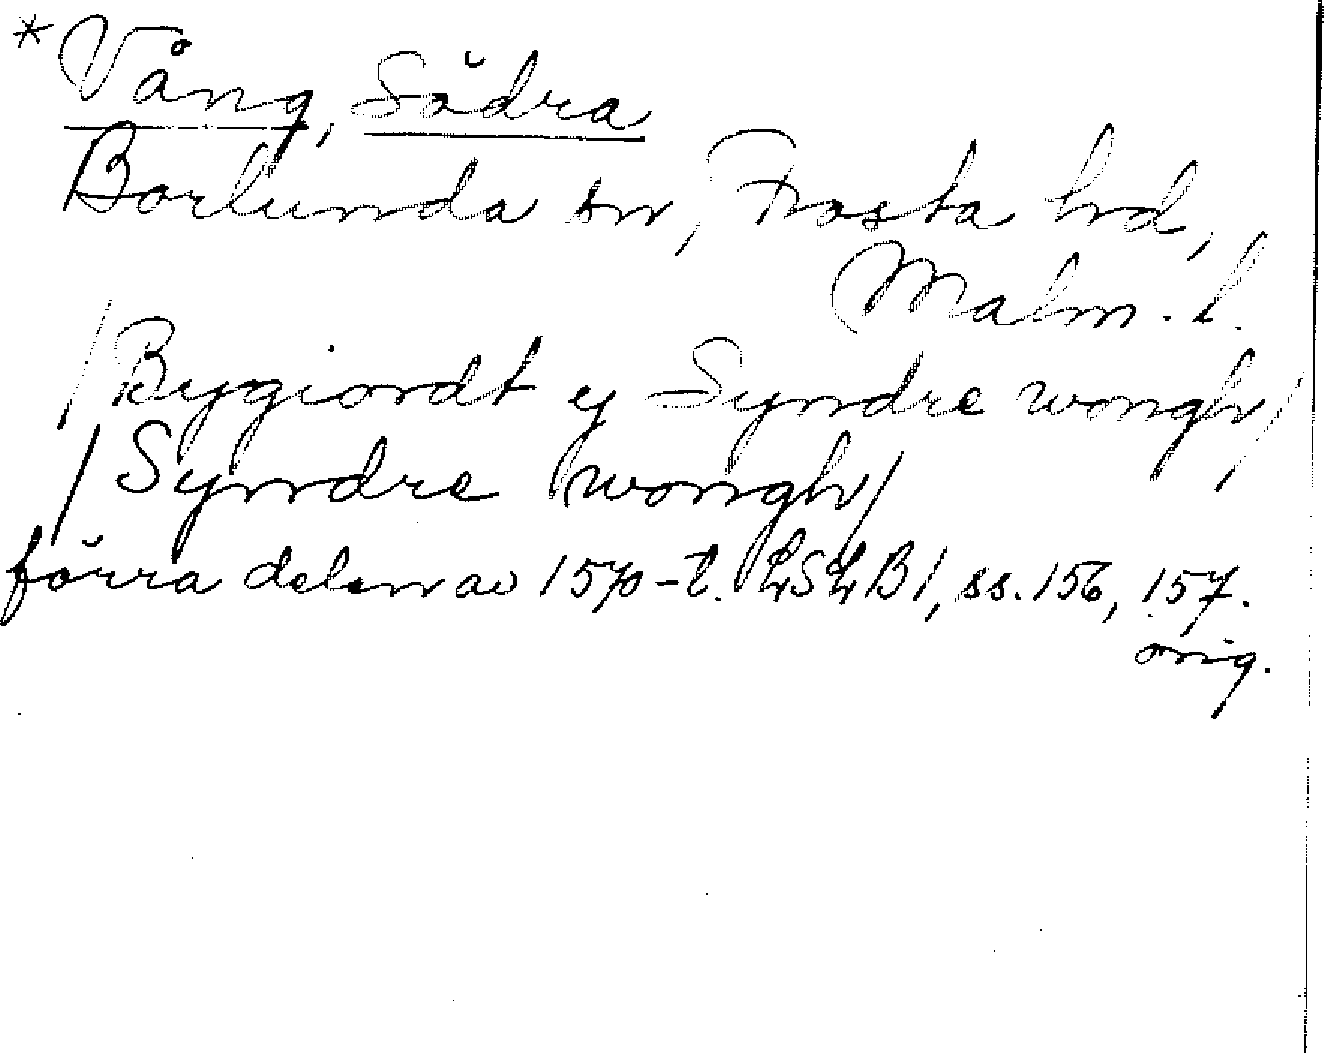 *Vång, Södra
Borlunda sn, Frosta hd,
Malm. l.
/Bygiordt ey Syndre wongh/
/Syndre wongh/
förra delen av 1570-t. LSLB1, ss. 156, 157.
orig.